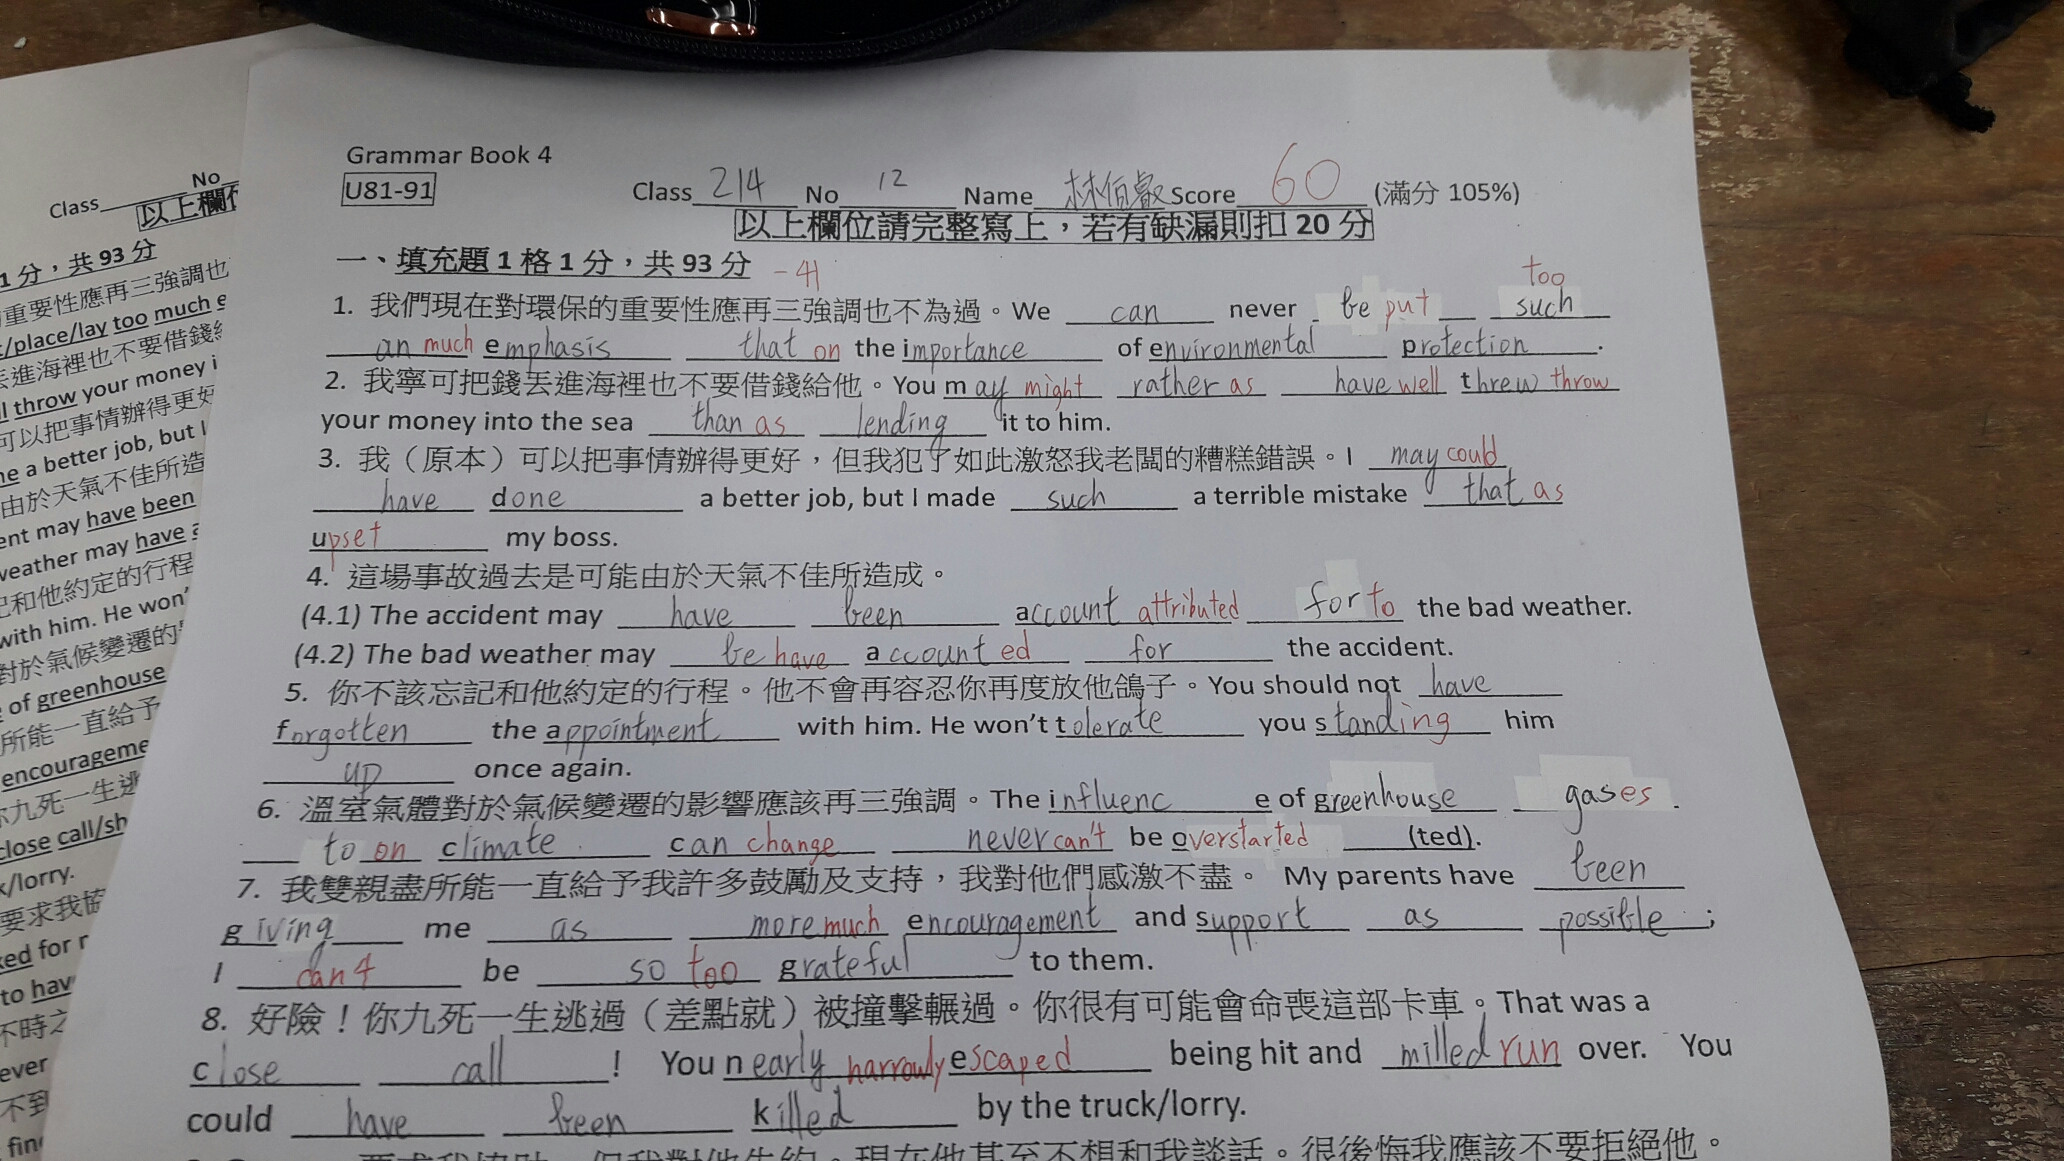 Grammar Book 4
U81-91 Class 214 No 12 Name 林佰叡 Score 60 (滿分 105%)
以上欄位請完整寫上，若有缺漏則扣 20 分
一、填充題 1 格 1 分，共 93 分 -41
too
1. 我們現在對環保的重要性應再三強調也不為過。We can never be put such
an much emphasis that on the importance of environmental protection.
2. 我寧可把錢丟進海裡也不要借錢給他。You may might rather as have well threw throw
your money into the sea than as lending it to him.
3. 我（原本）可以把事情辦得更好，但我犯了如此激怒我老闆的糟糕錯誤。I may could
have done a better job, but I made such a terrible mistake that as
upset my boss.
4. 這場事故過去是可能由於天氣不佳所造成。
(4.1) The accident may have been account attributed for to the bad weather.
(4.2) The bad weather may be have accounted for the accident.
5. 你不該忘記和他約定的行程。他不會再容忍你再度放他鴿子。You should not have
forgotten the appointment with him. He won't tolerate you standing him
up once again.
6. 溫室氣體對於氣候變遷的影響應該再三強調。The influenc e of greenhouse gases.
to on climate can change never can't be overstarted (ted).
7. 我雙親盡所能一直給予我許多鼓勵及支持，我對他們感激不盡。 My parents have been
giving me as more much encouragement and support as possible;
I can't be so too grateful to them.
8. 好險！你九死一生逃過（差點就）被撞擊輾過。你很有可能會命喪這部卡車。That was a
close call! You nearly narrowly escaped being hit and milled run over. You
could have been killed by the truck/lorry.
要求我協助，但我對他失約。現在他甚至不想和我談話。很後悔我應該不要拒絕他。
Class No
以上欄
1 分，共 93 分
重要性應再三強調也
/place/lay too much e
丟進海裡也不要借錢給
ll throw your money i
可以把事情辦得更好
ne a better job, but I
由於天氣不佳所造
ent may have been
weather may have
記和他約定的行程
with him. He won'
對於氣候變遷的
of greenhouse
所能一直給予
encourageme
你九死一生逃
close call/sh
k/lorry.
要求我協
ked for
to hav
不時之
ever
不到
fin